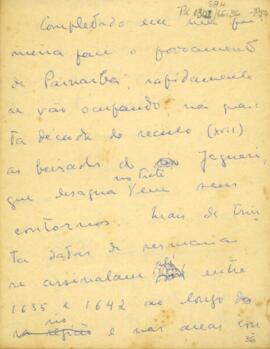 Completado em sua pri
meira fase o povoamento
de Parnaíba, rapidamente
se vão ocupando na quar
ta década do século (XVII)
as beiradas do Jaguari,
que desagua no Tietê em seus
contornos. Mais de trin
ta datas de sesmaria
se assinalam entre
1635 e 1642 ao longo do
rio e nas areas con
36